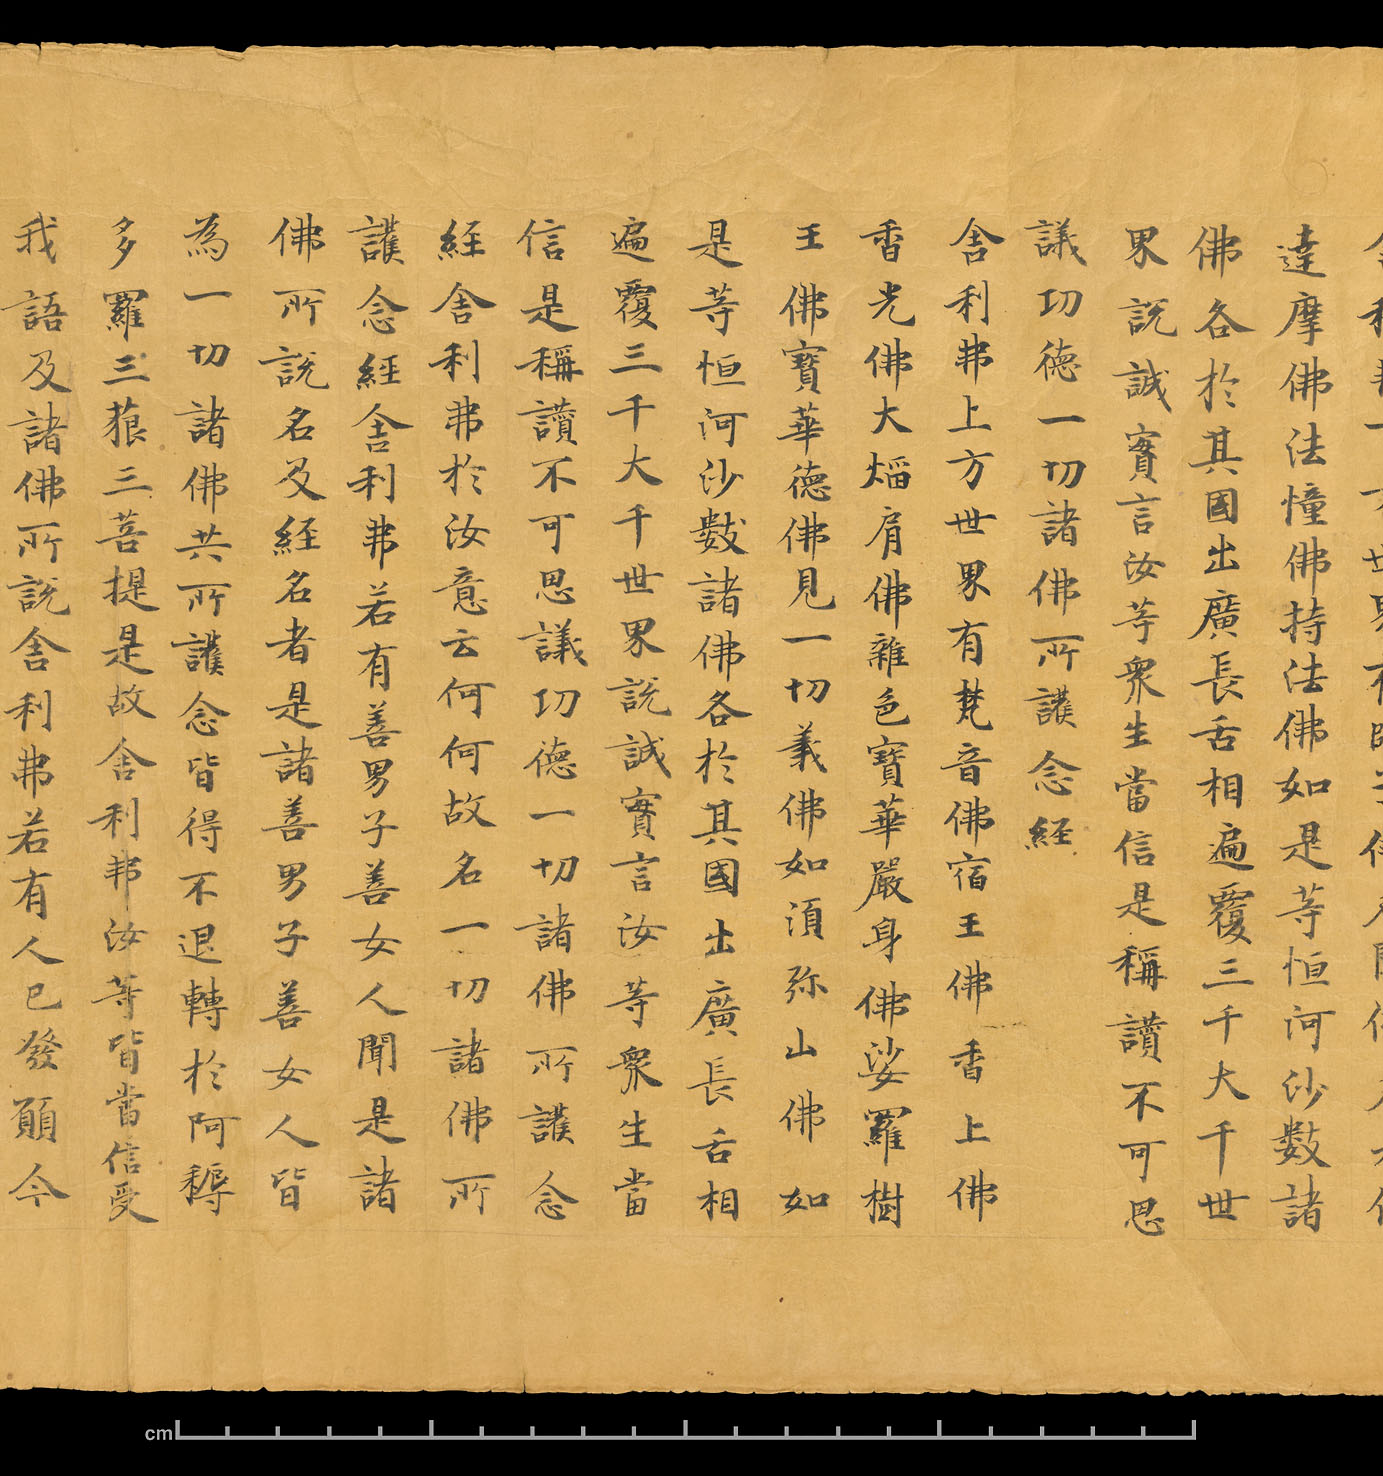 舍利弗下方世界有師子佛名聞佛名光佛
達摩佛法憧佛持法佛如是等恒河沙數諸
佛各於其國出廣長舌相遍覆三千大千世
界說誠實言汝等衆生當信是稱讚不可思
議功德一切諸佛所護念經
舍利弗上方世界有梵音佛宿王佛香上佛
香光佛大熖肩佛雜色寶華嚴身佛娑羅樹
王佛寶華德佛見一切義佛如湏弥山佛如
是等恒河沙數諸佛各於其國出廣長舌相
遍覆三千大千世界說誠實言汝等衆生當
信是稱讚不可思議功德一切諸佛所護念
經舍利弗於汝意云何何故名一切諸佛所
護念經舍利弗若有善男子善女人聞是諸
佛所說名及經名者是諸善男子善女人皆
為一切諸佛共所護念皆得不退轉於阿耨
多羅三藐三菩提是故舍利弗汝等皆當信受
我語及諸佛所說舍利弗若有人已發願今
cm